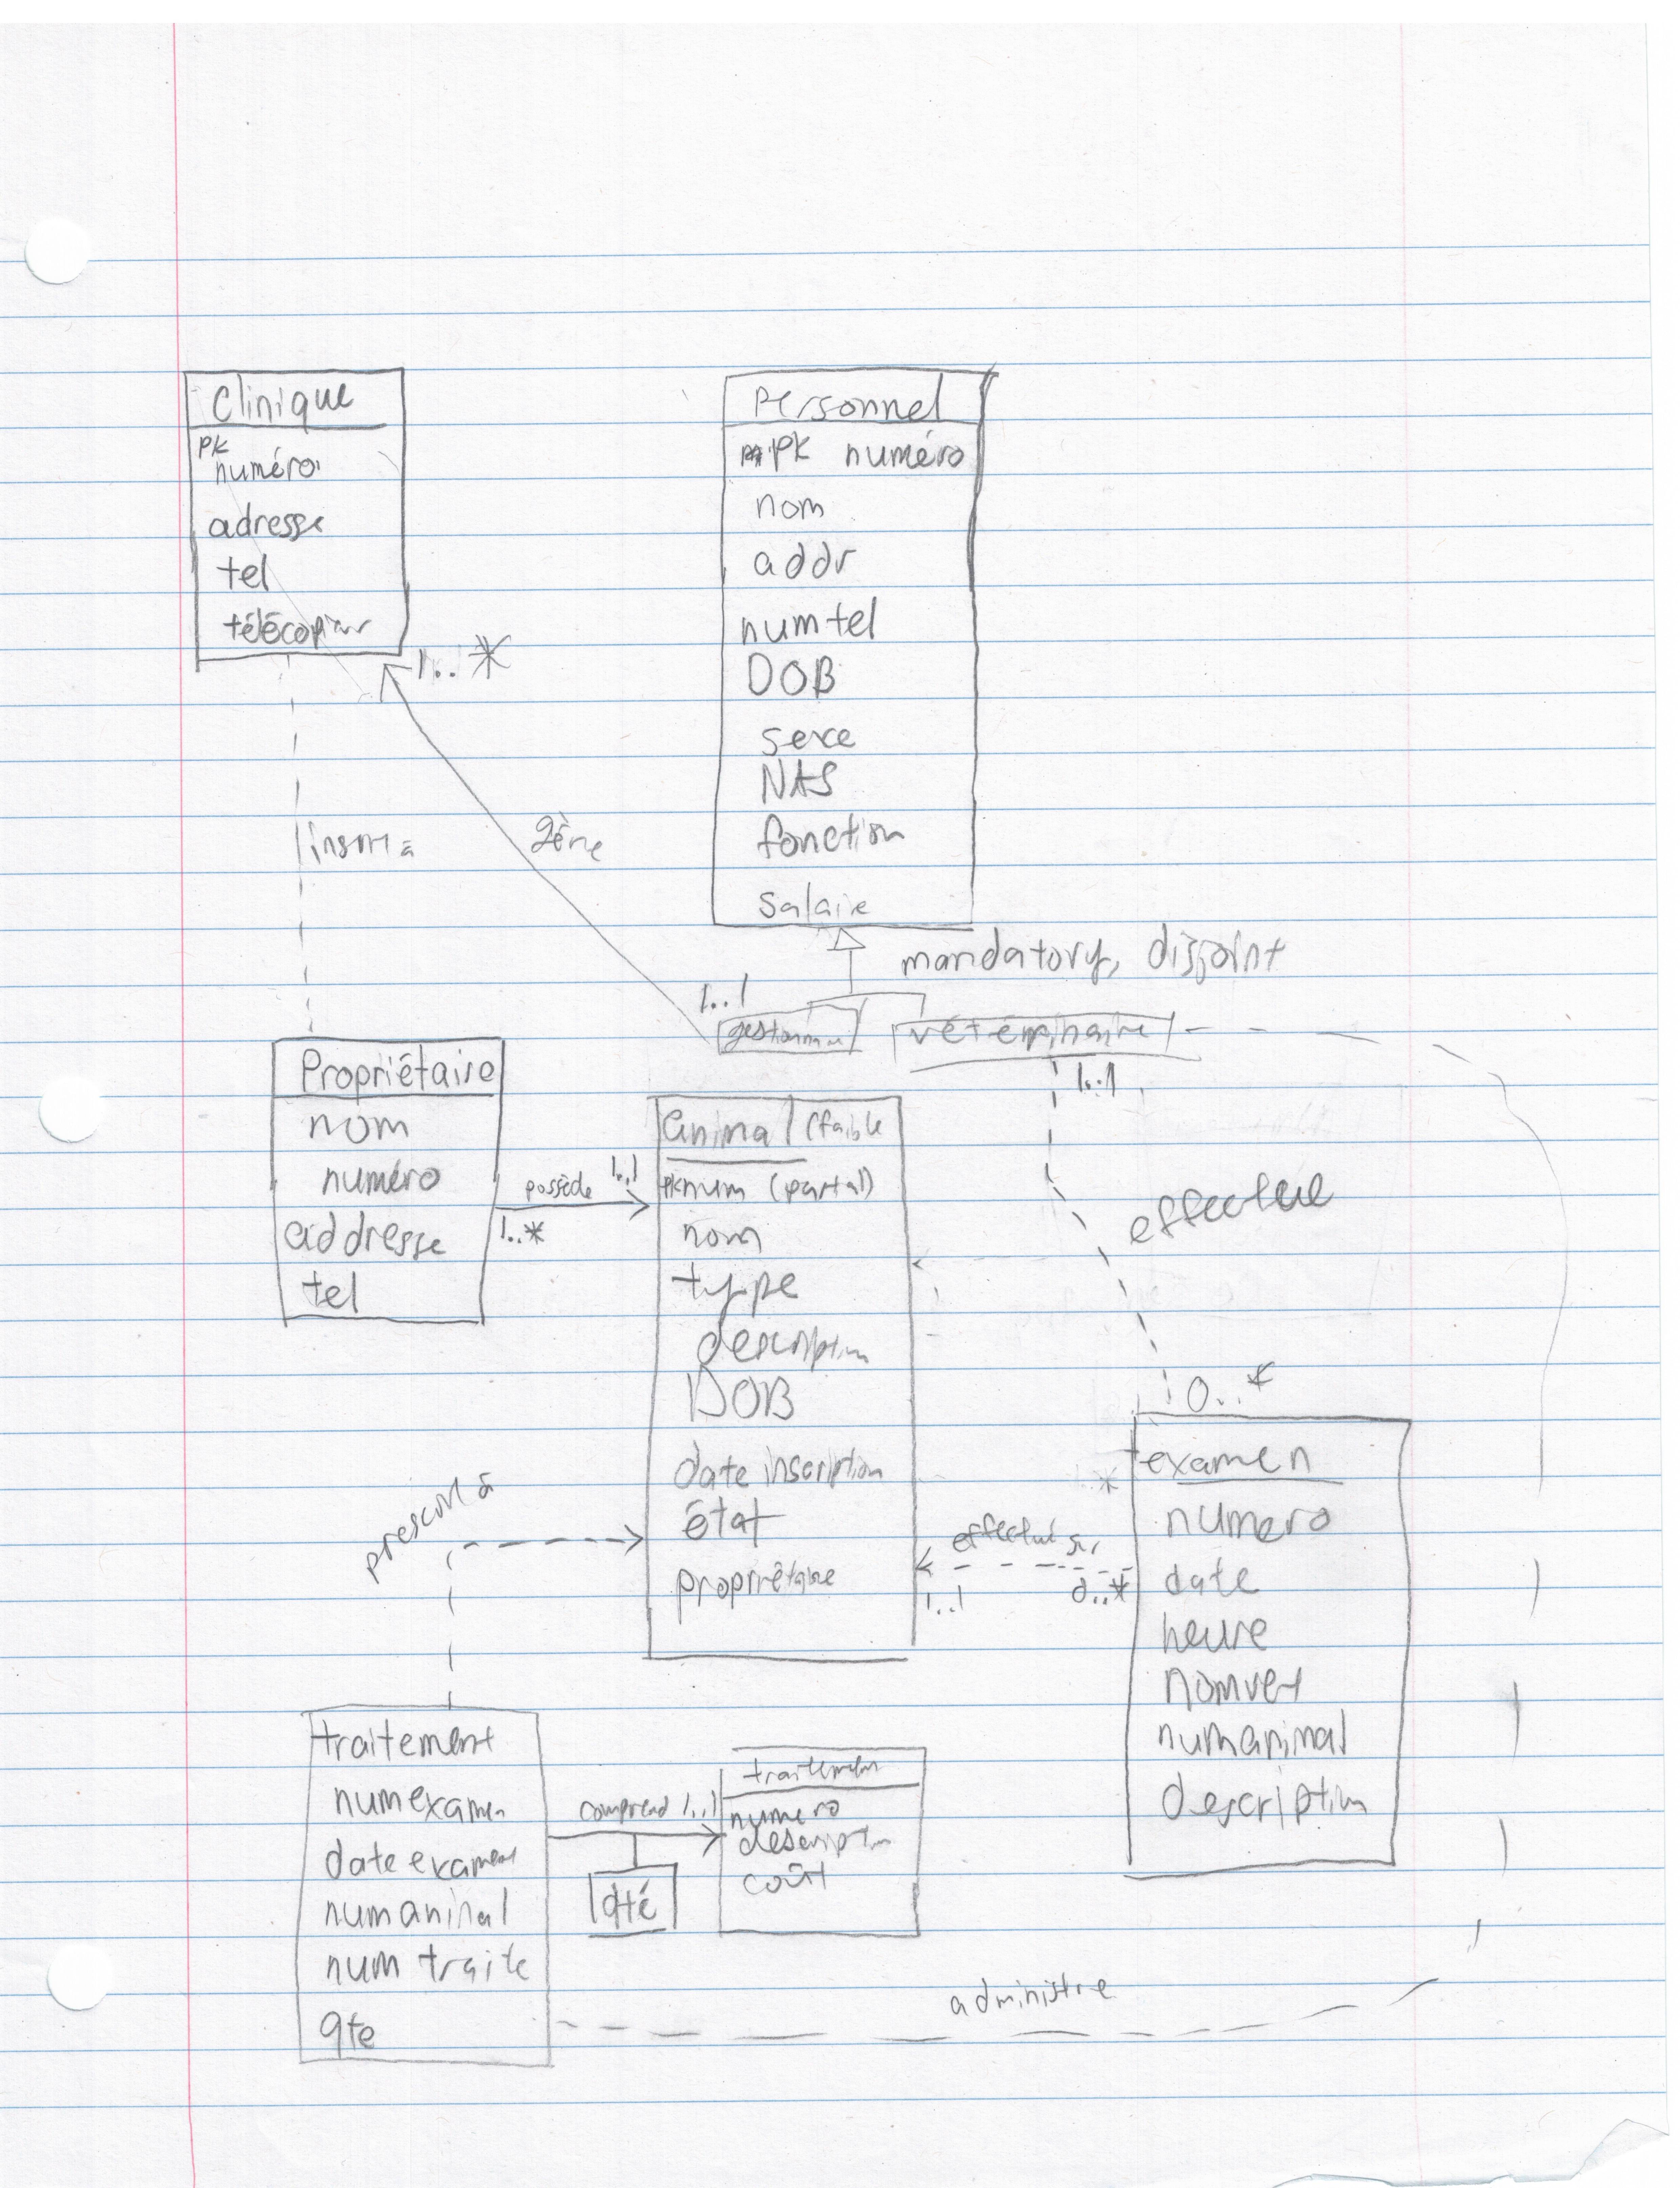 Clinique
PK
numéro
adresse
tel
télécopieur
1..*
Personnel
PK numéro
nom
addr
numtel
DOB
sexe
NAS
fonction
salaire
mandatory, disjoint
inscrit à
gère
1..1
vétérinaire
1..1
Propriétaire
nom
numéro
addresse
tel
possède 1..1
1..*
animal (faible
PK num (partal)
nom
type
description
DOB
date inscription
état
propriétaire
effectue
0..*
examen
numero
date
heure
nomvet
numanimal
description
*
effectué sur
1..1
0..*
prescrit à
traitement
numexamen
date examen
numanimal
num traite
qte
comprend 1..1
qté
traitement
numero
descriptn
coût
administre